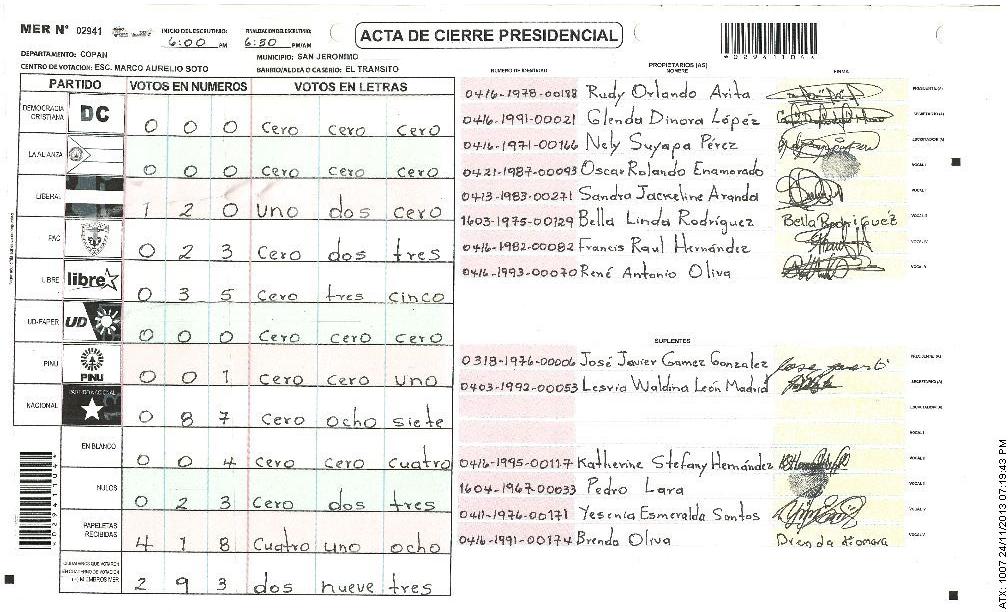 MER Nº 02941
INICIO DEL ESCRUTINIO: 6:00 PM
FINALIZACION DEL ESCRUTINIO: 6:50 PM/AM
ACTA DE CIERRE PRESIDENCIAL
*02941104*
DEPARTAMENTO: COPAN
MUNICIPIO: SAN JERONIMO
CENTRO DE VOTACION: ESC. MARCO AURELIO SOTO
BARRIO/ALDEA O CASERIO: EL TRANSITO
PARTIDO VOTOS EN NUMEROS VOTOS EN LETRAS
DEMOCRACIA CRISTIANA DC 0 0 0 cero cero cero
LA ALIANZA 0 0 0 cero cero cero
LIBERAL 1 2 0 uno dos cero
PAC 0 2 3 Cero dos tres
LIBRE libre 0 3 5 cero tres cinco
UD-FAPER UD 0 0 0 Cero cero cero
PINU PINU 0 0 1 Cero cero uno
NACIONAL PARTIDO NACIONAL 0 8 7 Cero ocho siete
EN BLANCO 0 0 4 cero cero cuatro
NULOS 0 2 3 Cero dos tres
PAPELETAS RECIBIDAS 4 1 8 Cuatro uno ocho
CIUDADANOS QUE VOTARON EN CUADERNO DE VOTACION (+) MIEMBROS MER 2 9 3 dos nueve tres
NUMERO DE IDENTIDAD PROPIETARIOS (AS) NOMBRE FIRMA
0416-1978-00188 Rudy Orlando Arita PRESIDENTE (A)
0416-1991-00021 Glenda Dinora López SECRETARIO (A)
0416-1971-00166 Nely Suyapa Pérez ESCRUTADOR (A)
0421-1987-00093 Oscar Rolando Enamorado VOCAL I
0413-1983-00271 Sandra Jackeline Aranda
1603-1975-00129 Bella Linda Rodríguez Bella Rodriguez
0416-1982-00082 Francis Raul Hernández
0416-1993-00070 René Antonio Oliva
SUPLENTES
0318-1976-00006 José Javier Gamez Gonzalez PRESIDENTE (A)
0403-1992-00053 Lesvia Waldina León Madrid SECRETARIO (A)
ESCRUTADOR (A)
VOCAL I
0416-1995-00117 Katherine Stefany Hernández
1604-1967-00033 Pedro Lara
0411-1976-00171 Yesenia Esmeralda Santos
0416-1991-00174 Brenda Oliva
*02941104*
ATX: 1007 24/11/2013 07:19:43 PM